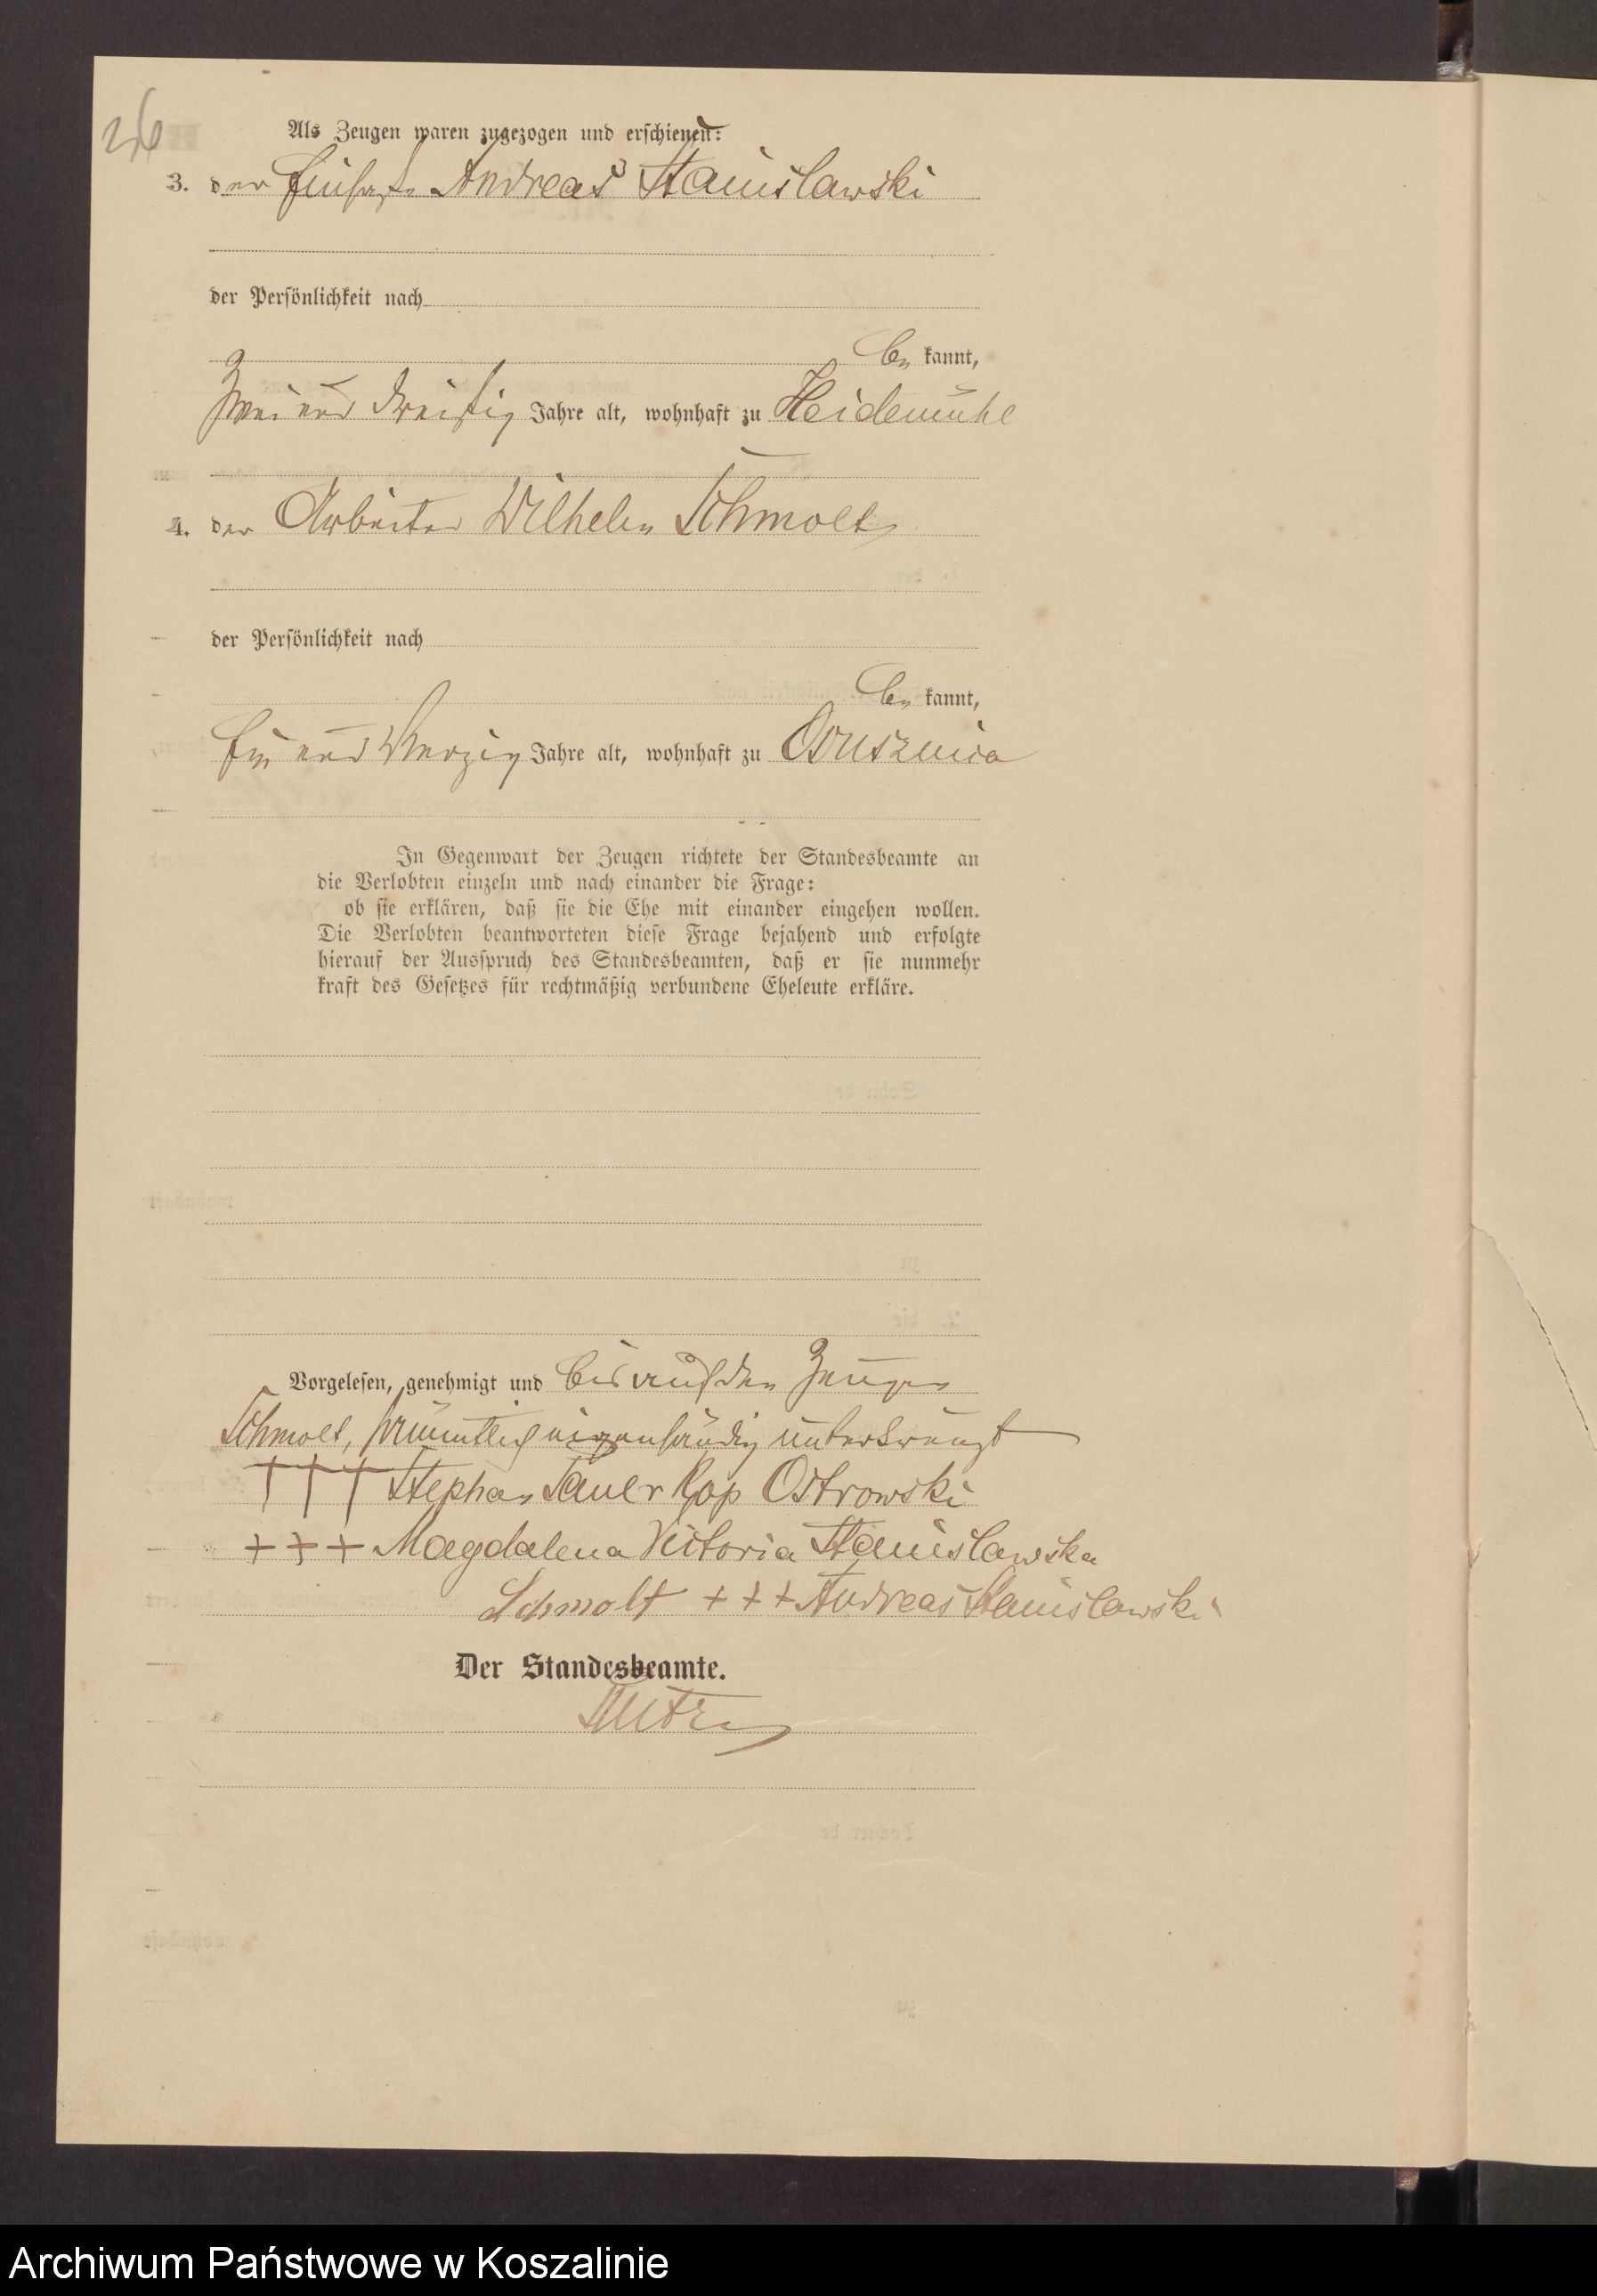 26
Als Zeugen waren zugezogen und erschienen:
3. der Einsasse Andreas Stanislawski
der Persönlichkeit nach
be kannt,
zwei und dreißig Jahre alt, wohnhaft zu Heidemühl
4. der Arbeiter Wilhelm Schmolt
der Persönlichkeit nach
be kannt,
ein und vierzig Jahre alt, wohnhaft zu Osusznica
In Gegenwart der Zeugen richtete der Standesbeamte an
die Verlobten einzeln und nach einander die Frage:
ob sie erklären, daß sie die Ehe mit einander eingehen wollen.
Die Verlobten beantworteten diese Frage bejahend und erfolgte
hierauf der Ausspruch des Standesbeamten, daß er sie nunmehr
kraft des Gesetzes für rechtmäßig verbundene Eheleute erkläre.
Vorgelesen, genehmigt und bis auf den Zeugen
Schmolt, sämmtlich eigenhändig unterkreuzt
+++ Stephan Ostrowski
+++ Magdalena Victoria Stanislawska
Schmolt +++ Andreas Stanislawski
Der Standesbeamte.
Archiwum Państwowe w Koszalinie